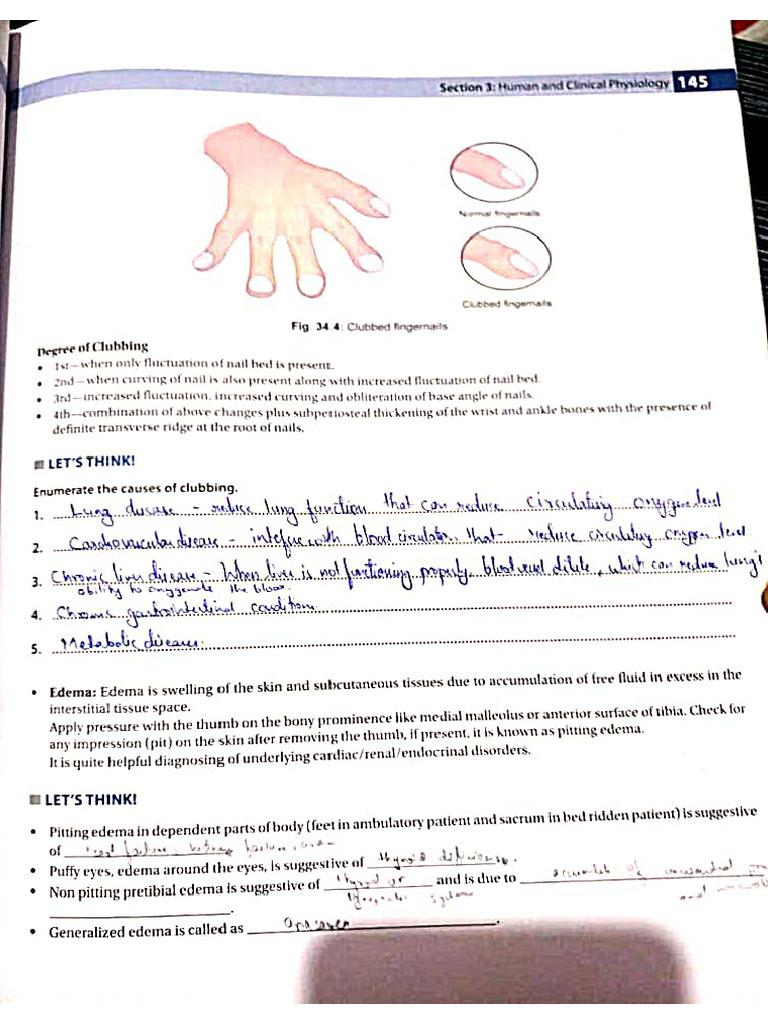 Section 3: Human and Clinical Physiology 145
Normal fingernails
Clubbed fingernails
Fig. 34.4: Clubbed fingernails
Degree of Clubbing
• 1st—when only fluctuation of nail bed is present.
• 2nd—when curving of nail is also present along with increased fluctuation of nail bed.
• 3rd—increased fluctuation, increased curving and obliteration of base angle of nails.
• 4th—combination of above changes plus subperiosteal thickening of the wrist and ankle bones with the presence of
definite transverse ridge at the root of nails.
LET'S THINK!
Enumerate the causes of clubbing.
1. Lung disease - reduse lung function that can reduce circulating oxygen level
2. Cardiovascular disease - with blood that reduce oxygen level
3. Chronic liver disease - When liver is not functioning properly, blood vessel dilate, which can reduce lung's
ability to oxygenate the blood.
4. Chronic gastrointestinal condition
5. Metabolic disease.
• Edema: Edema is swelling of the skin and subcutaneous tissues due to accumulation of free fluid in excess in the
interstitial tissue space.
Apply pressure with the thumb on the bony prominence like medial malleolus or anterior surface of tibia. Check for
any impression (pit) on the skin after removing the thumb, if present, it is known as pitting edema.
It is quite helpful diagnosing of underlying cardiac/renal/endocrinal disorders.
LET'S THINK!
• Pitting edema in dependent parts of body (feet in ambulatory patient and sacrum in bed ridden patient) is suggestive
of failure
• Puffy eyes, edema around the eyes, is suggestive of thyroid
• Non pitting pretibial edema is suggestive of thyroid or and is due to of
system and
• Generalized edema is called as